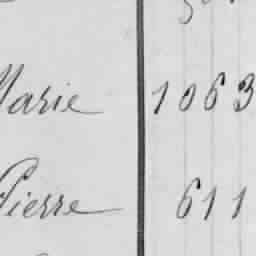 Marie 1063
Pierre 611